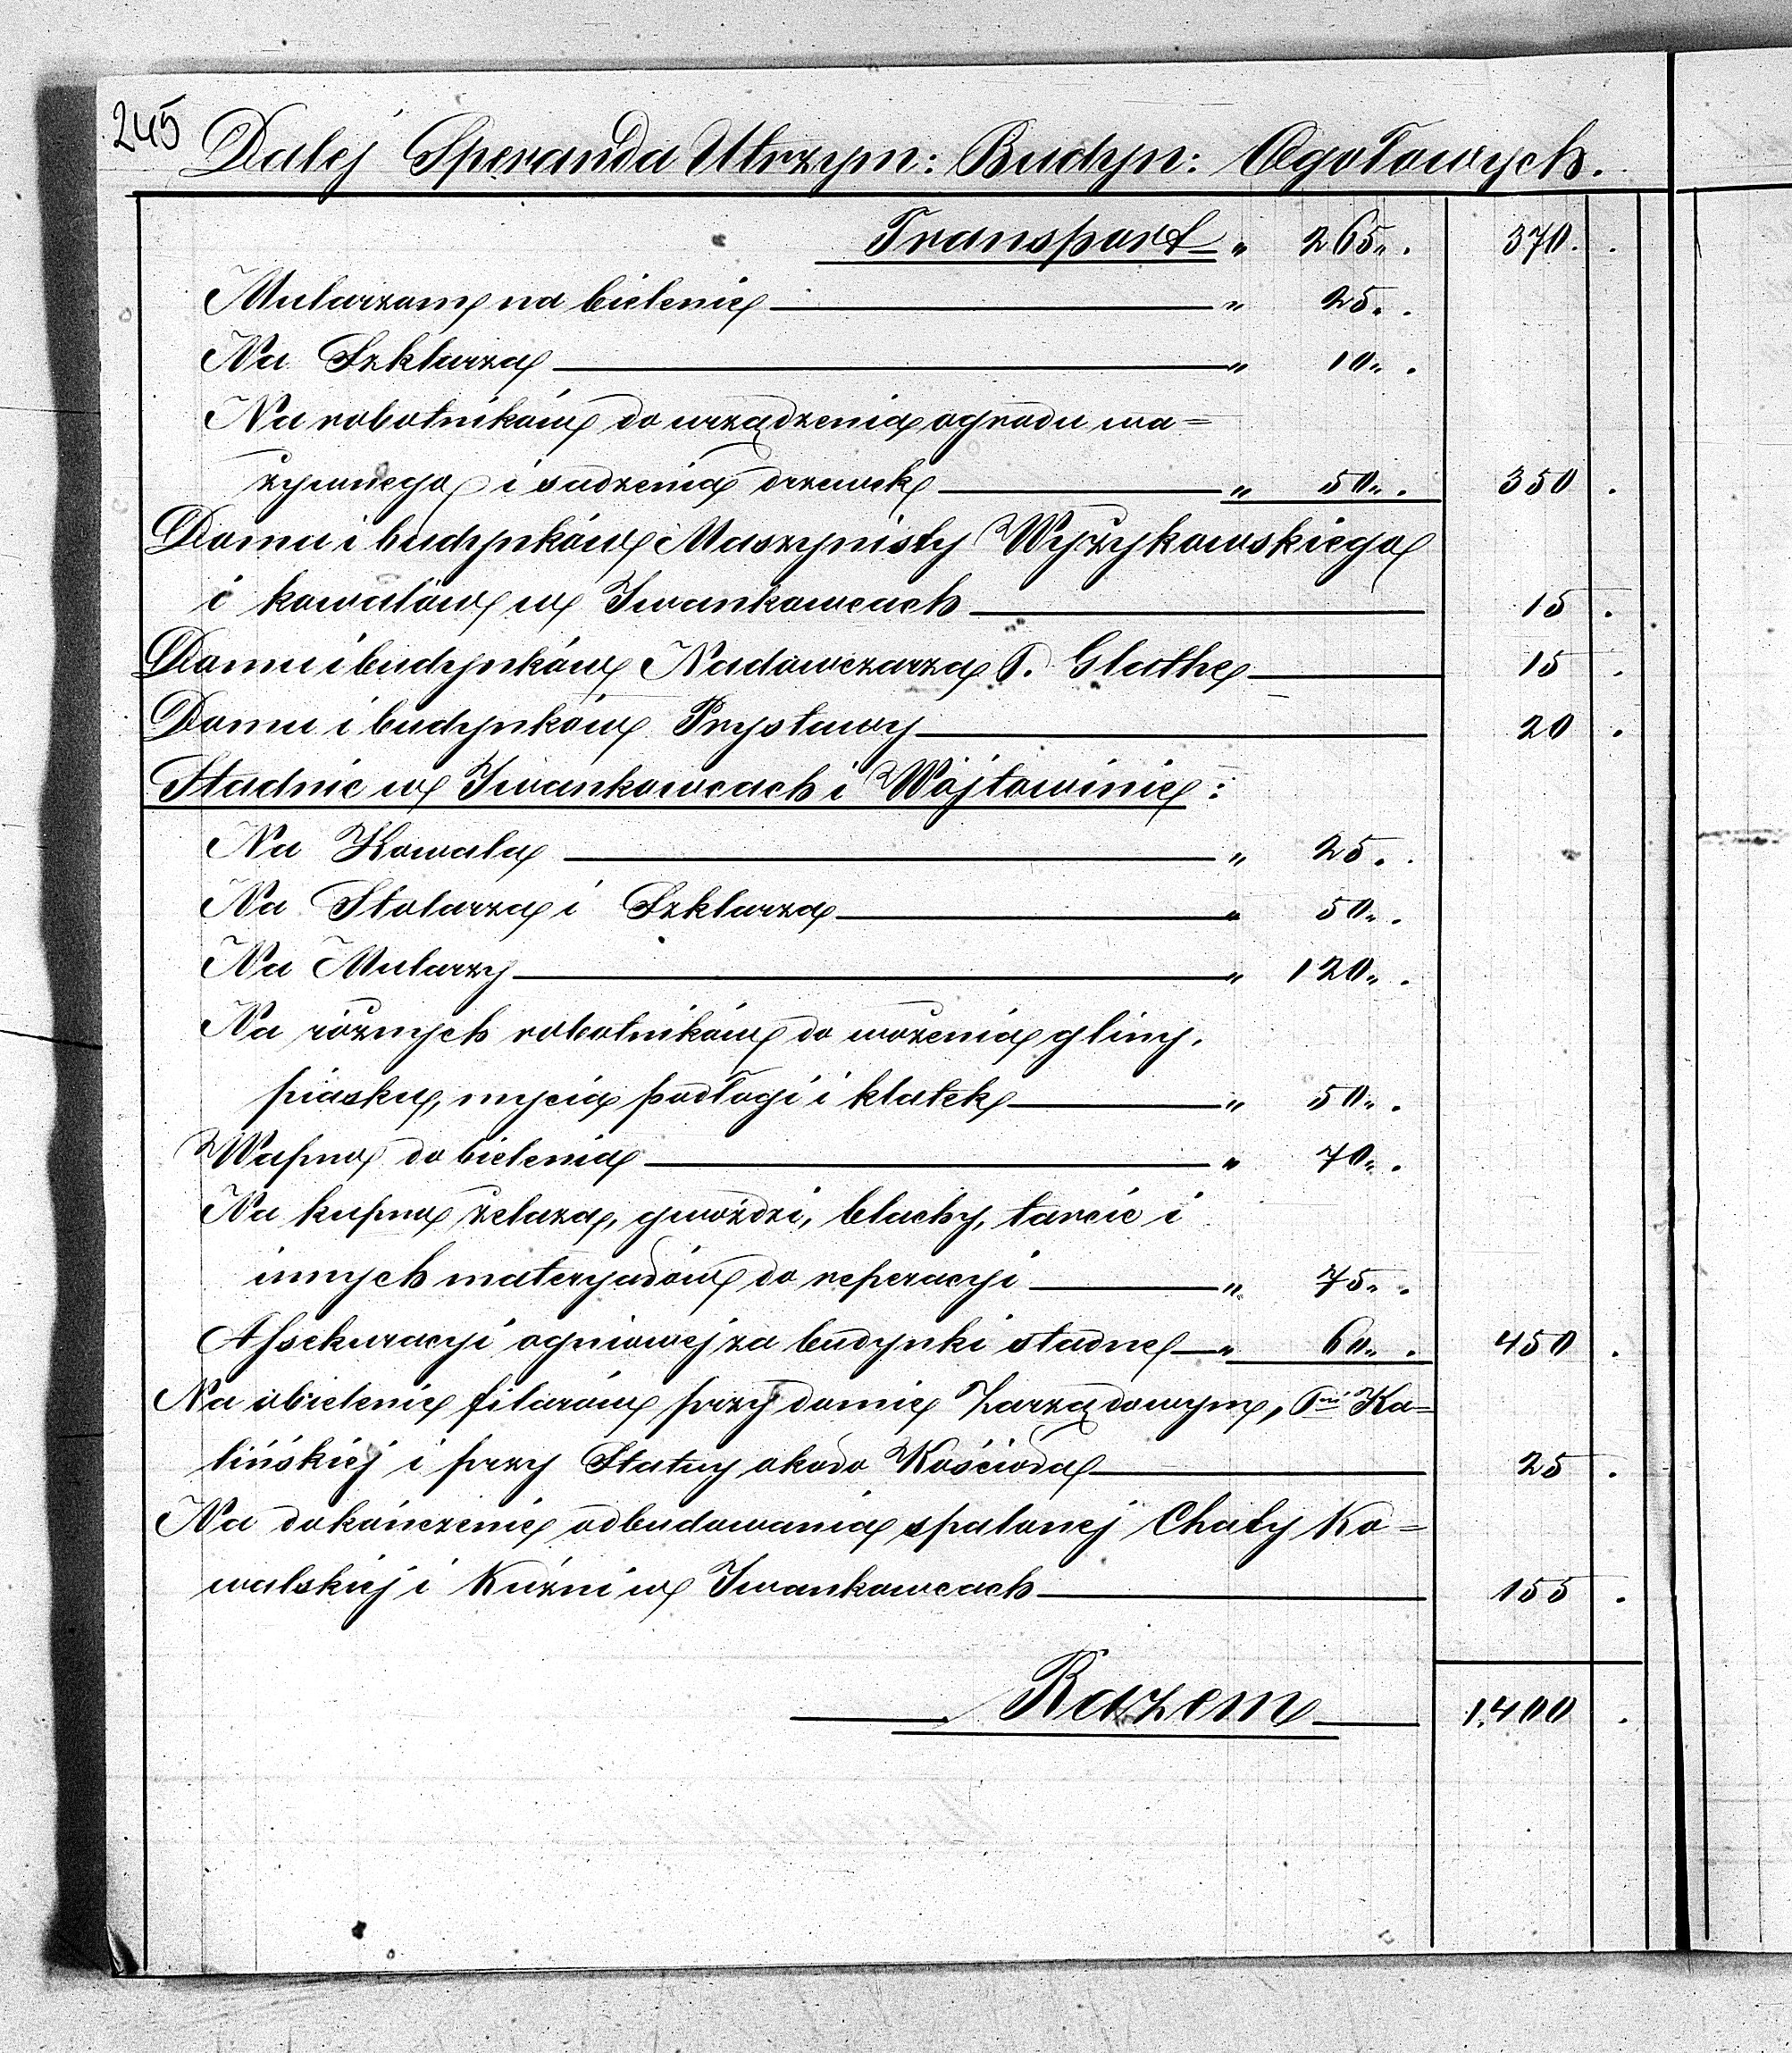 245
Dalej Speranda Utrzym: Budyn: Ogołowych.
Transport " 265 " . 370 . .
Mularzom na bielenie " 25 " .
Na Szklarza " 10 " .
Na robotników do urządzenia ogrodu wa=
rzywnego i sadzenia drzewek " 50 " . 350 .
Domu i budynków Maszynisty Wyrzykowskiego
i kowalów w Iwankowcach 15 .
Domu i budynków Nadowczarza P. Glathe 15 .
Domu i budynków Prystawy 20 .
Stadnie w Iwankowcach i Wójtowinie:
Na Kowala " 25 . .
Na Stolarza i Szklarza " 50 " .
Na Mularzy " 120 " .
Na różnych robotników do wożenia gliny,
piasku, mycia podłogi i klatek " 50 " .
Wapno do bielenia " 70 " .
Na kupno żelaza, gwoździ, blachy, tarcic i
innych materyałów do reperacyi " 75 " .
Assekuracyi ogniowej za budynki stadne " 60 " . 450 .
Na obielenie filarów przy domie Zarządowym, Pni Ka=
lińskiéj i przy Statuy około Kościoła 25 .
Na dokończenie odbudowania spalonej Chaty Ko=
walskiej i Kuźni w Iwankowcach 155 .
Razem 1,400 .